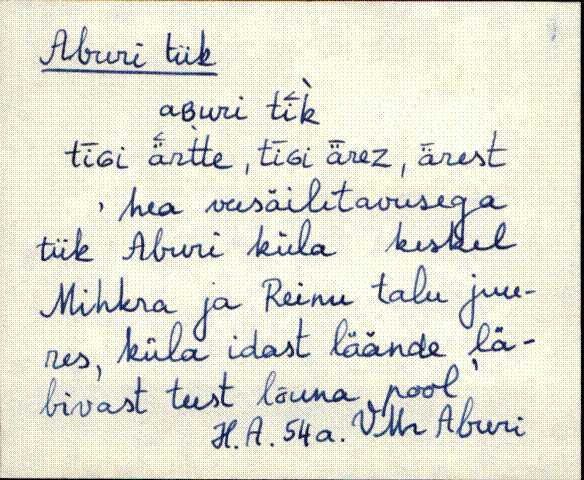 Aburi tiik
aʙuri tī̬̀k
tīɢi ǟ̬r̀tte, tīɢi ǟrez, ǟrest
, hea veesäilitavusega
tiik Aburi küla keskel
Mihkra ja Reinu talu juu-
res, küla idast läände lä-
bivast teest lõuna pool
H.A. 54a. VMr Aburi